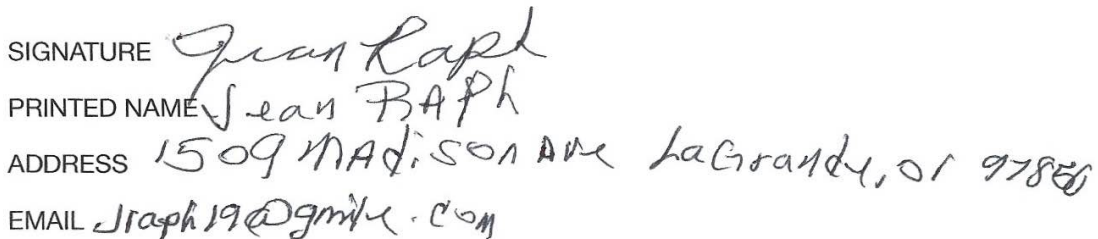 SIGNATURE Jean Raph
PRINTED NAME Jean RAPh
ADDRESS 1509 MAdison Ave LaGrande, or 97850
EMAIL Jraph19@gmile.com